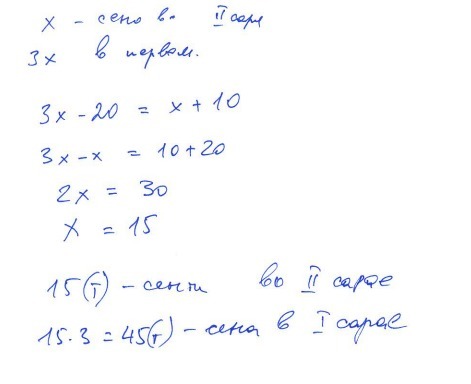 x - сено во II сарае
3x в первом.
3x - 20 = x + 10
3x - x = 10 + 20
2x = 30
x = 15
15 (т) - сена во II сарае
15 · 3 = 45 (т) - сена в I сарае